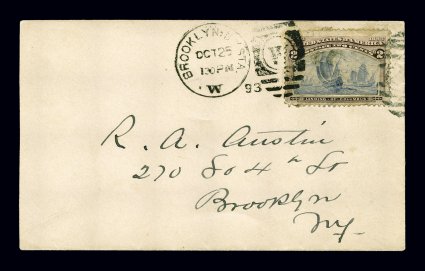 BROOKLYN, STA.
OCT 25
1 30 PM
W
93
W
R. A. Austin
270 So 4th St
Brooklyn
Ny.